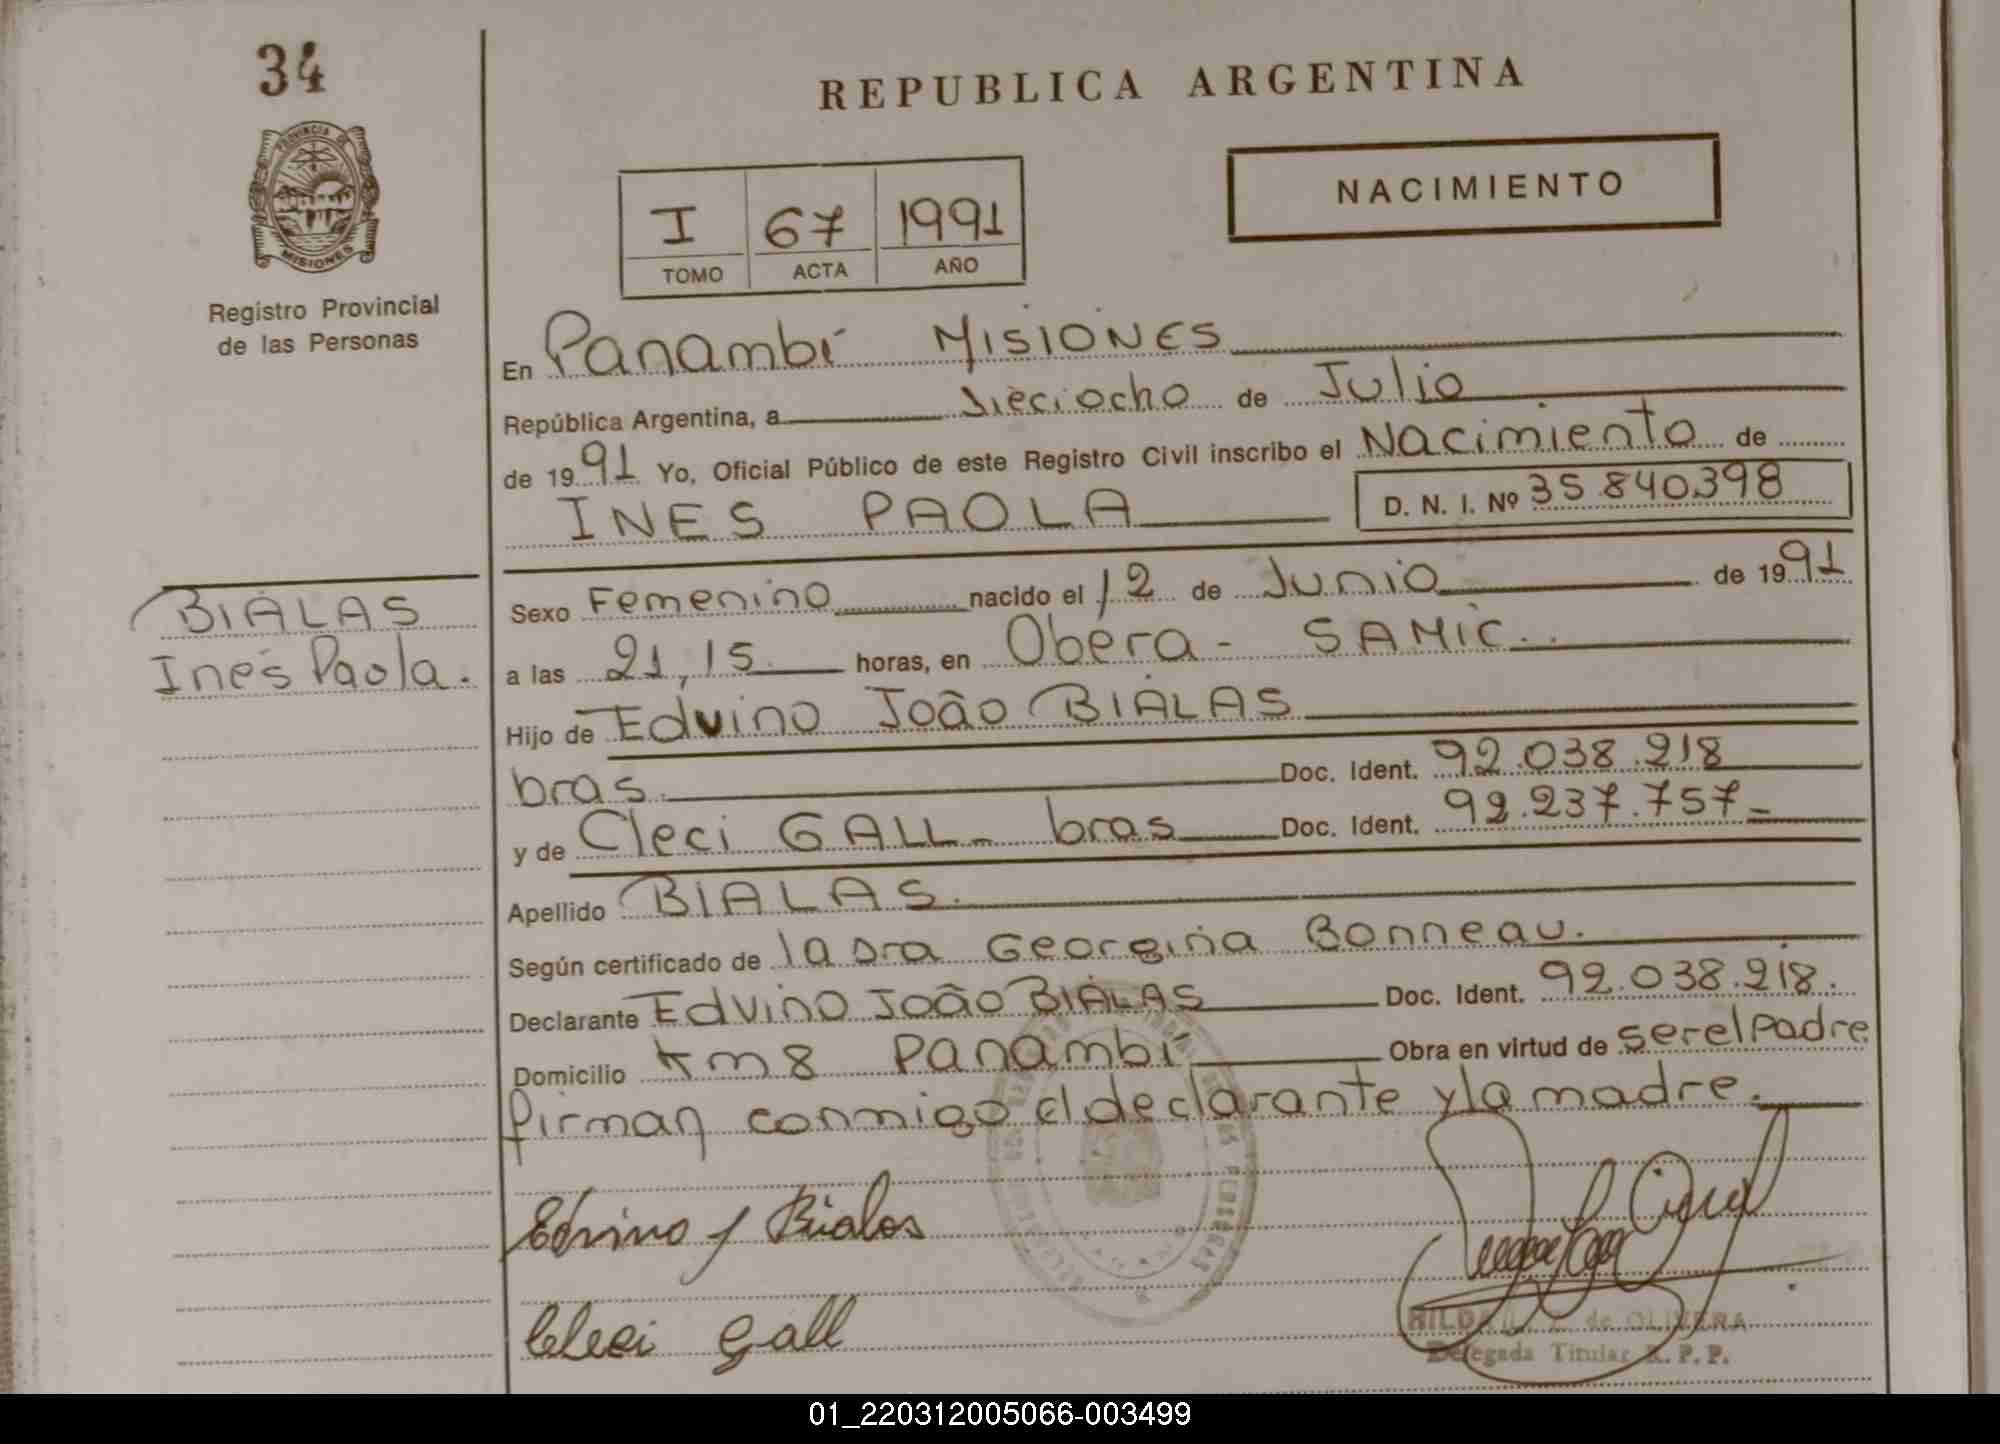 34
REPUBLICA ARGENTINA
PROVINCIA DE
MISIONES
NACIMIENTO
I 67 1991
TOMO ACTA AÑO
Registro Provincial
de las Personas
En Panambí MISIONES
República Argentina, a dieciocho de Julio
de 1991 Yo, Oficial Público de este Registro Civil inscribo el Nacimiento de
INES PAOLA D. N. I. Nº 35.840.398
BIALAS
Inés Paola.
Sexo Femenino nacido el 12 de Junio de 1991
a las 21,15 horas, en Obera - SAMIC.
Hijo de Edvino João BIALAS
bras. Doc. Ident. 92.038.218
y de Cleci GALL - bras Doc. Ident. 92.237.757-
Apellido BIALAS.
Según certificado de la Sra Georgina Bonneau.
Declarante Edvino João BIALAS Doc. Ident. 92.038.218.
Domicilio Km 8 Panambí Obra en virtud de ser el Padre
firman conmigo el declarante y la madre.
Edvino J Bialas
Cleci Gall
HILDA de OLIVERA
Delegada Titular R. P. P.
01_220312005066-003499